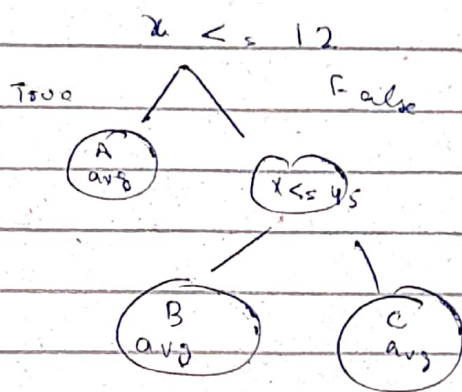 x <= 12
True False
A
avg
x <= 45
B
avg
C
avg